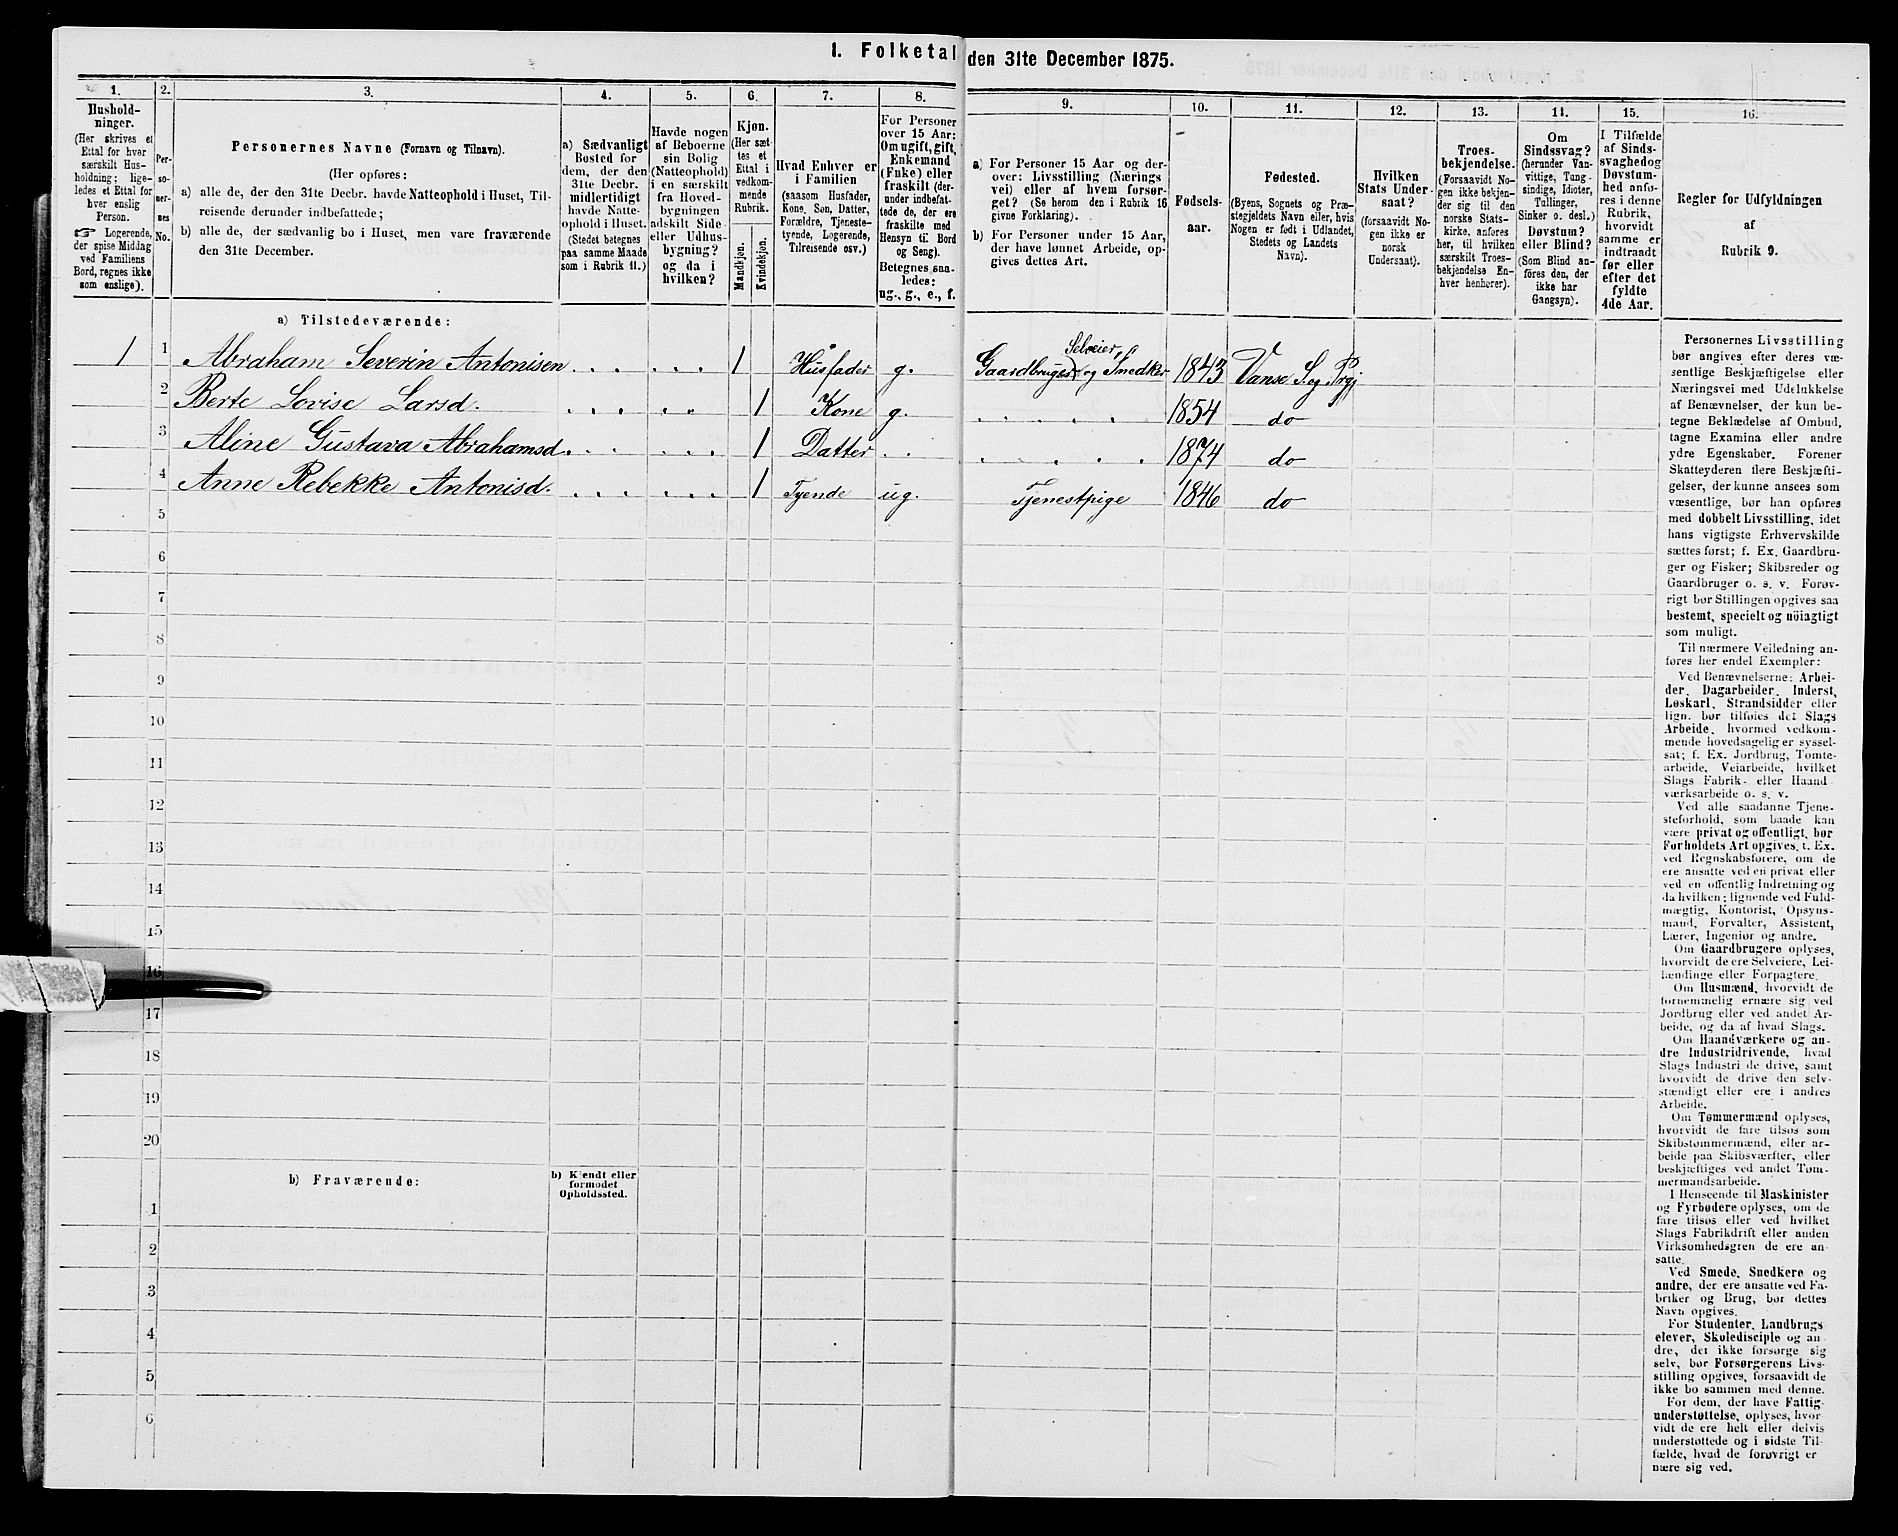 I. Folketal den 31te December 1875.
1. 2. 3. 4. 5. 6. 7. 8. 9. 10. 11. 12. 13. 14. 15. 16.
Hushold-
ninger.
(Her skrives et
Ettal for hver
særskilt Hus-
holdning; lige-
ledes et Ettal for
hver enslig
Person.
☞ Logerende,
der spise Middag
ved Familiens
Bord, regnes ikke
som enslige).
Per-
so-
ner-
nes
No.
Personernes Navne (Fornavn og Tilnavn).
(Her opføres:
a) alle de, der den 31te Decbr. havde Natteophold i Huset, Til-
reisende derunder indbefattede;
b) alle de, der sædvanlig bo i Huset, men vare fraværende
den 31te December.
a) Sædvanligt
Bosted for
dem, der den
31te Decbr.
midlertidigt
havde Natte-
ophold i Huset.
(Stedet betegnes
paa samme Maade
som i Rubrik 11.)
Havde nogen
af Beboerne
sin Bolig
(Natteophold)
i en særskilt
fra Hoved-
bygningen
adskilt Side-
eller Udhus-
bygning?
og da i
hvilken?
Kjøn.
(Her sæt-
tes et
Ettal i
vedkom-
mende
Rubrik.
Mandkjøn.
Kvindekjøn.
Hvad Enhver er
i Familien
(saasom Husfader,
Kone, Søn, Datter,
Forældre, Tjeneste-
tyende, Logerende,
Tilreisende osv.)
For Personer
over 15 Aar:
Om ugift, gift,
Enkemand
(Enke) eller
fraskilt (der-
under indbefat-
tede de, der ere
fraskilte med
Hensyn til Bord
og Seng).
Betegnes saa-
ledes:
ug., g., e., f.
a) For Personer 15 Aar og der-
over: Livsstilling (Nærings-
vei) eller af hvem forsør-
get? (Se herom den i Rubrik 16
givne Forklaring).
b) For Personer under 15 Aar,
der have lønnet Arbeide, op-
gives dettes Art.
Fødsels-
aar.
Fødested.
(Byens, Sognets og Præ-
stegjeldets Navn eller, hvis
Nogen er født i Udlandet,
Stedets og Landets
Navn).
Hvilken
Stats Under-
saat?
(forsaavidt No-
gen ikke er
norsk
Undersaat).
Troes-
bekjendelse.
(Forsaavidt No-
gen ikke bekjen-
der sig til den
norske Stats-
kirke, anføres
her, til hvilken
særskilt Troes-
bekjendelse En-
hver henhører).
Om
Sindssvag?
(herunder Van-
vittige, Tung-
sindige, Idioter,
Tullinger,
Sinker o. desl.)
Døvstum?
eller Blind?
(Som Blind an-
føres den, der
ikke har
Gangsyn).
I Tilfælde
af Sinds-
svaghed og
Døvstum-
hed anfø-
res i denne
Rubrik,
hvorvidt
samme er
indtraadt
før eller
efter det
fyldte
4de Aar.
Regler for Udfyldningen
af
Rubrik 9.
a) Tilstedeværende:
1 1 Abraham Severin Antonisen 1 Husfader g. Selveier, Gaardbruger og Snedker 1843 Vanse S. og Prgj
2 Berte Lovise Larsd. 1 Kone g. 1854 do
3 Aline Gustava Abrahamsd. 1 Datter 1874 do
4 Anne Rebekke Antonisd. 1 Tyende ug. Tjenestpige 1846 do
5
6
7
8
9
10
11
12
13
14
15
16
17
18
19
20
b) Fraværende:
b) Kjendt eller
formodet
Opholdssted.
1
2
3
4
5
6
Personernes Livsstilling
bør angives efter deres væ-
sentlige Beskjæftigelse eller
Næringsvei med Udelukkelse
af Benævnelser, der kun be-
tegne Beklædelse af Ombud,
tagne Examina eller andre
ydre Egenskaber. Forener
Skatteyderen flere Beskjæfti-
gelser, der kunne ansees som
væsentlige, bør han opføres
med dobbelt Livsstilling, idet
hans vigtigste Erhvervskilde
sættes først; f. Ex. Gaardbru-
ger og Fisker; Skibsreder og
Gaardbruger o. s. v. Forøv-
rigt bør Stillingen opgives saa
bestemt, specielt og nöiagtigt
som muligt.
Til nærmere Veiledning an-
føres her endel Exempler:
Ved Benævnelserne: Arbei-
der, Dagarbeider, Inderst,
Løskarl, Strandsidder eller
lign. bør tilføies det Slags
Arbeide, hvormed vedkom-
mende hovedsagelig er syssel-
sat; f. Ex. Jordbrug, Tomte-
arbeide, Veiarbeide, hvilket
Slags Fabrik- eller Haand-
værksarbeide o. s. v.
Ved alle saadanne Tjene-
steforhold, som baade kan
være privat og offentligt, bør
Forholdets Art opgives, t. Ex.
ved Regnskabsførere, om de
ere ansatte ved en privat eller
ved en offentlig Indretning og
da hvilken; lignende ved Fuld-
mægtig, Kontorist, Opsyns-
mand, Forvalter, Assistent,
Lærer, Ingeniør og andre.
Om Gaardbrugere oplyses,
hvorvidt de ere Selveiere, Lei-
lændinge eller Forpagtere.
Om Husmænd, hvorvidt de
fornemmelig ernære sig ved
Jordbrug eller ved andet Ar-
beide, og da af hvad Slags.
Om Haandværkere og an-
dre Industridrivende, hvad
Slags Industri de drive, samt
hvorvidt de drive den selv-
stændigt eller ere i andres
Arbeide.
Om Tømmermænd oplyses,
hvorvidt de fare tilsøs som
Skibstømmermænd, eller ar-
beide paa Skibsværfter, eller
beskjæftiges ved andet Tøm-
mermandsarbeide.
I Henseende til Maskinister
og Fyrbødere oplyses, om de
fare tilsøs eller ved hvilket
Slags Fabrikdrift eller anden
Virksomhedsgren de ere an-
satte.
Ved Smede, Snedkere og
andre, der ere ansatte ved Fa-
briker og Brug, bør dettes
Navn opgives.
For Studenter, Landbrugs-
elever, Skoledisciple og an-
dre, der ikke forsørge sig
selv, bør Forsørgerens Livs-
stilling opgives, forsaavidt de
ikke bo sammen med denne.
For dem, der have Fattig-
understøttelse, oplyses, hvor-
vidt de ere helt eller delvis
understøttede og i sidste Til-
fælde, hvad de forøvrigt er-
nære sig ved.